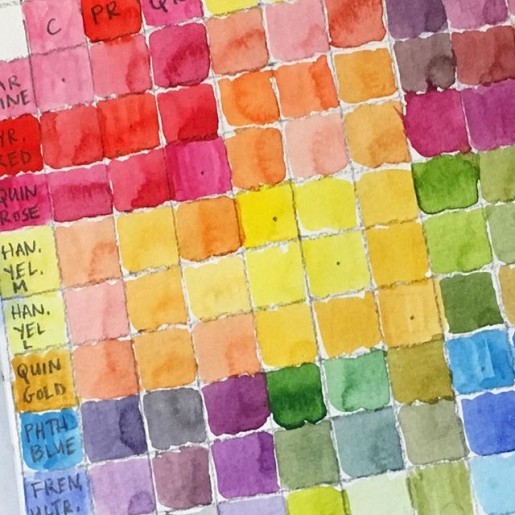 C
PR
YR.
RED
QUIN
ROSE
HAN.
YEL.
M
HAN.
YEL
L
QUIN
GOLD
PHTH
BLUE
FREN.
ULTR.